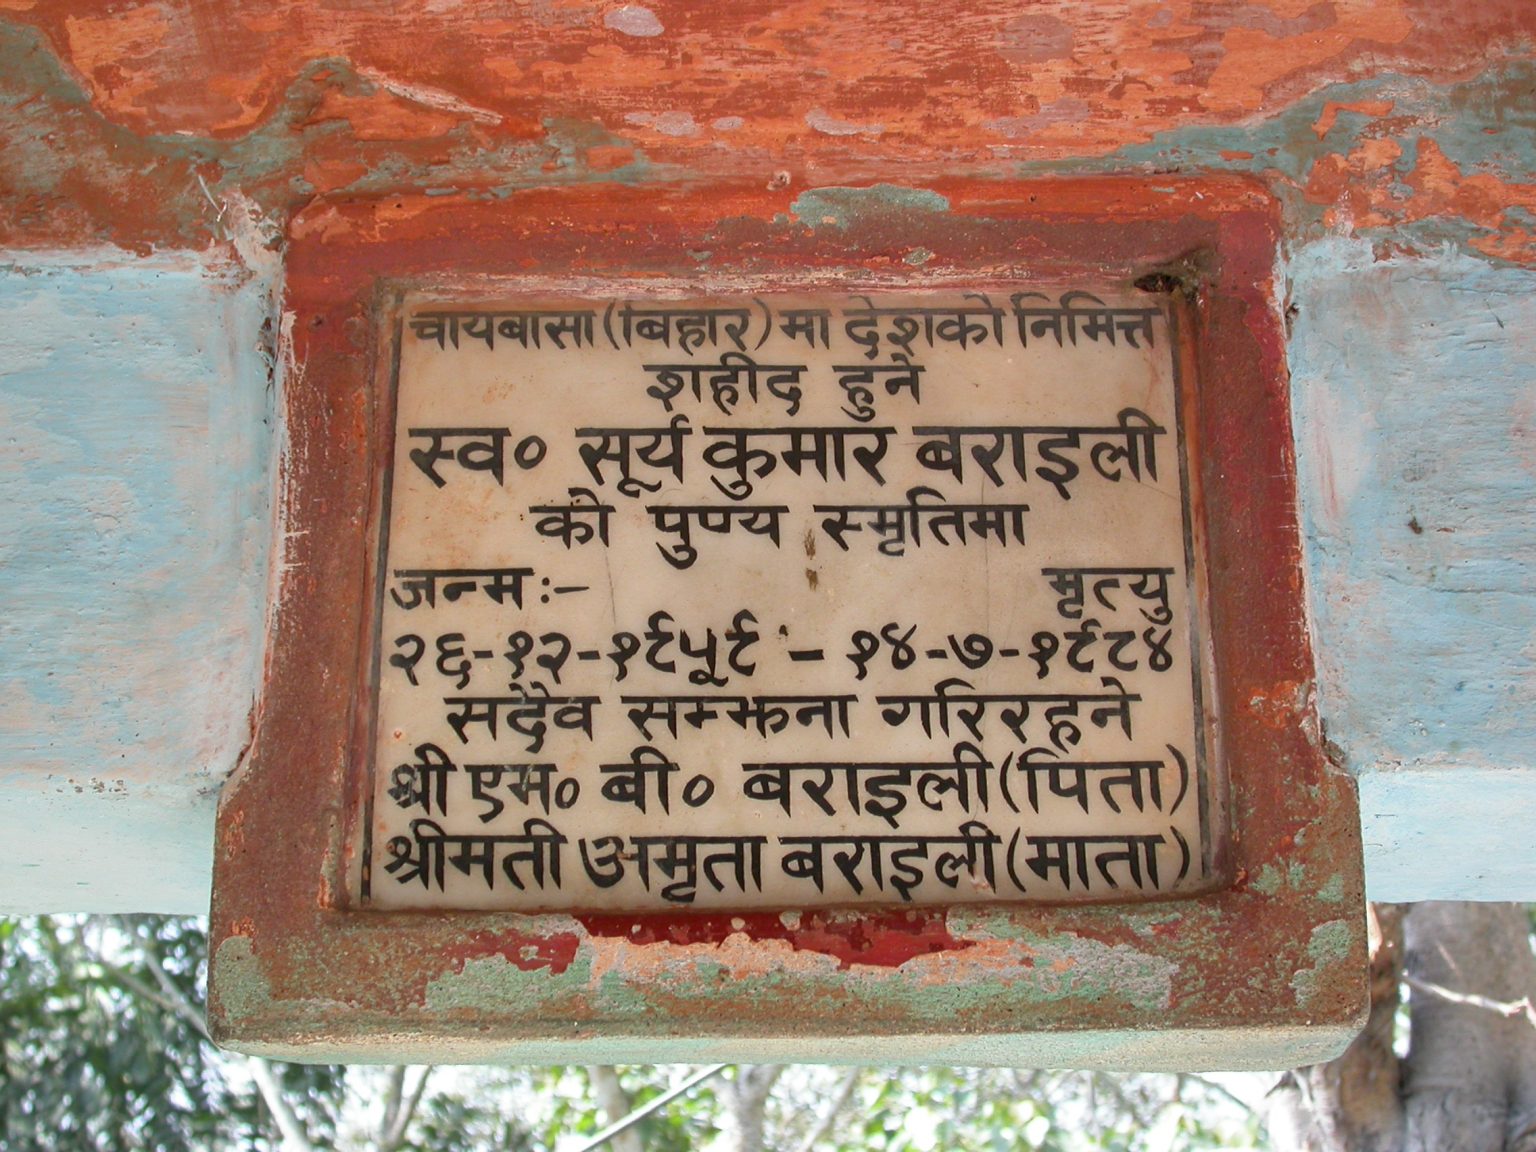 चायबासा (बिहार) मा देशको निमित्त
शहीद हुने
स्व० सूर्य कुमार बराइली
को पुण्य स्मृतिमा
जन्म :- मृत्यु
२६-१२-१९५९ - १४-७-१९८४
सदैव सम्झना गरिरहने
श्री एम० बी० बराइली (पिता)
श्रीमती अमृता बराइली (माता)